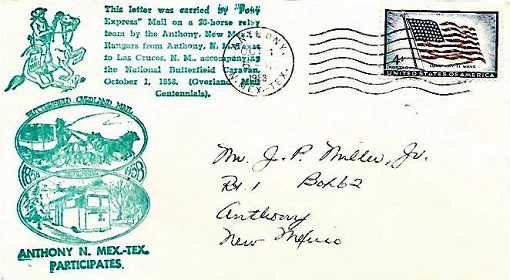 This letter was carried by "Pony
Express" Mail on a 20-horse relay
team by the Anthony, New Mexico
Rangers from Anthony, N. M.-Texas
to Las Cruces, N. M., accompanying
the National Butterfield Caravan,
October 1, 1958. (Overland Mail
Centennials).
ANTHONY,
OCT
1
1958
N. MEX.-TEX.
4¢
LONG MAY IT WAVE
UNITED STATES OF AMERICA
BUTTERFIELD OVERLAND MAIL
1858 1958
ANTHONY N. MEX-TEX.
PARTICIPATES.
Mr. J. P. Miller, Jr.
Rt. 1 Box 62
Anthony
New Mexico